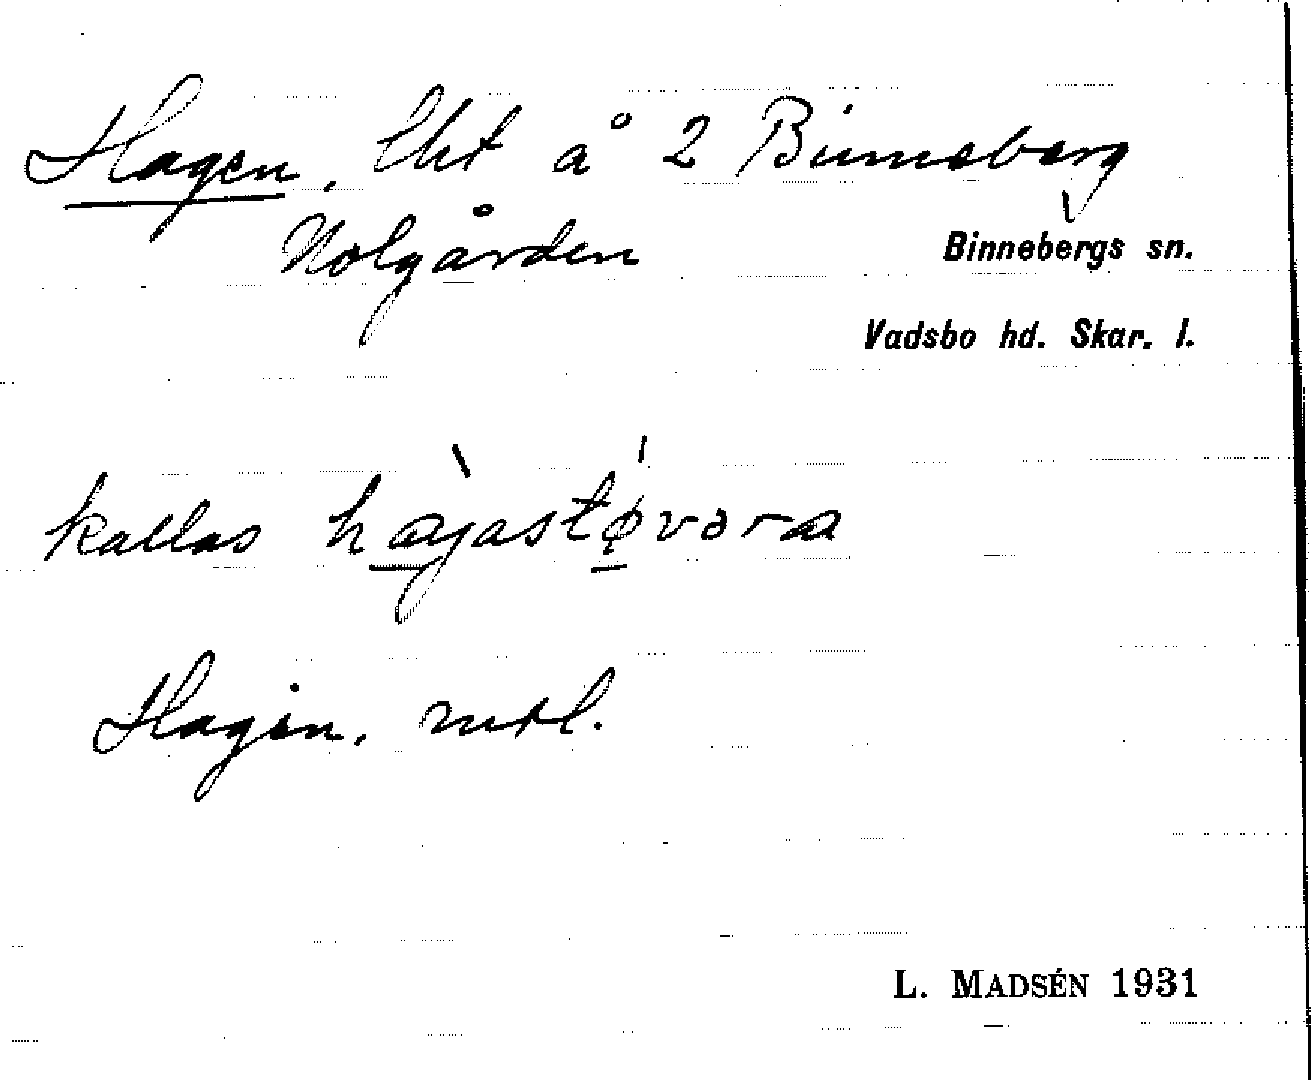 Hagen, lht å 2 Binneberg
Nolgården
Binnebergs sn.
Vadsbo hd. Skar. l.
kallas
Hagen, mtl.
L. MADSÉN 1931